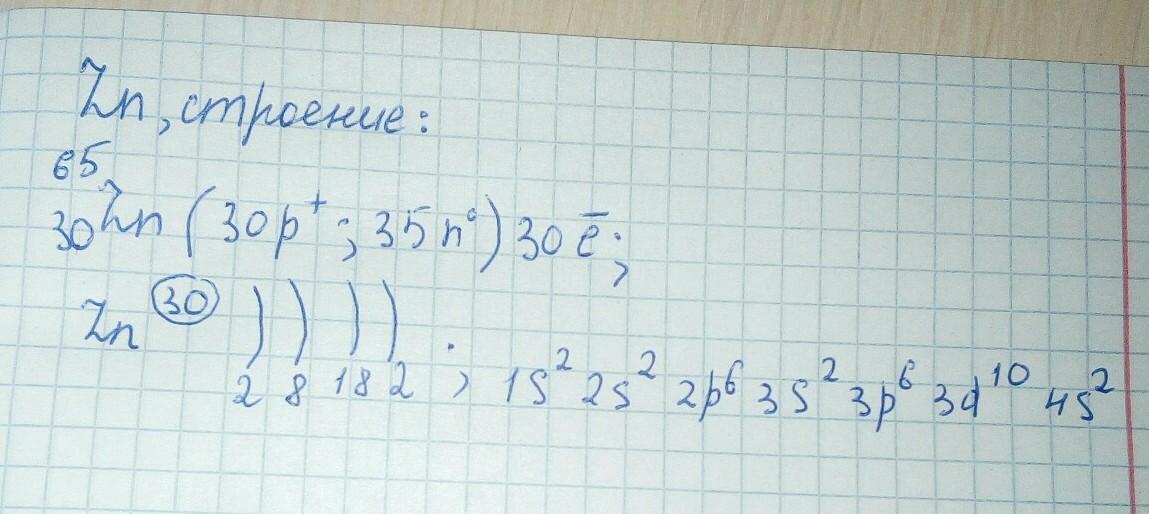 Zn, строение:
65
30Zn (30p⁺; 35n⁰) 30ē;
Zn 30 ) ) ) )
2 8 18 2 ; 1s² 2s² 2p⁶ 3s² 3p⁶ 3d¹⁰ 4s²